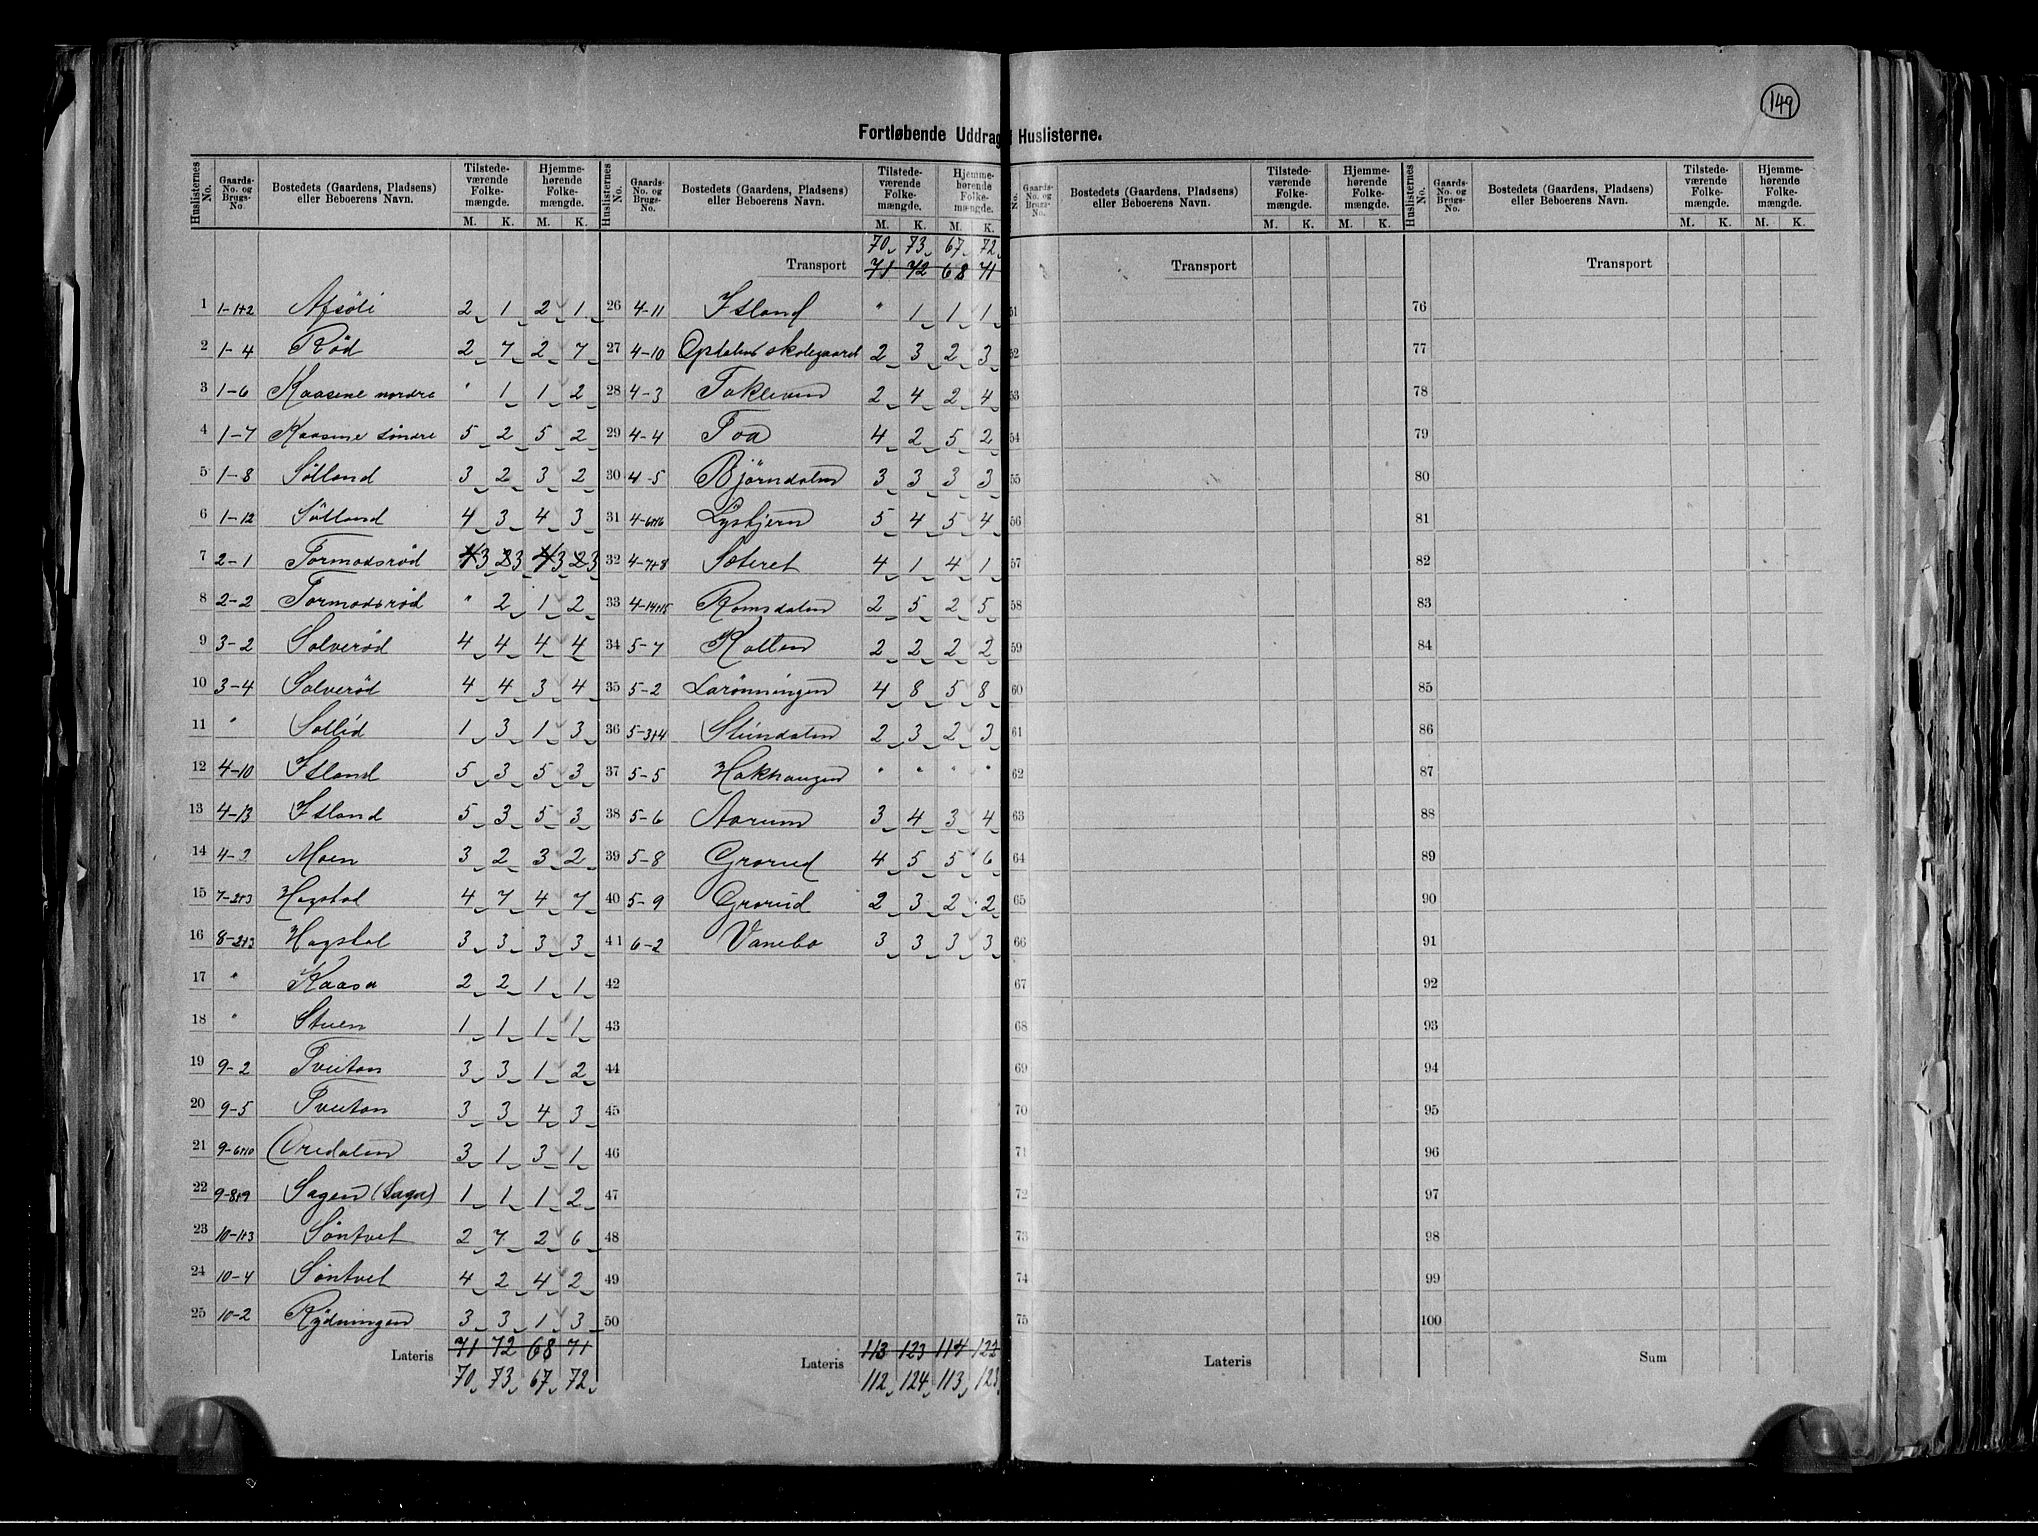 149
Fortløbende Uddrag Huslisterne.
Huslisternes No. | Gaards-No. og Brugs-No. | Bostedets (Gaardens, Pladsens) eller Beboerens Navn. | Tilstede-værende Folke-mængde. M. K. | Hjemme-hørende Folke-mængde. M. K.
1 1-1+2 Afsöli 2 1 2 1
2 1-4 Rød 2 7 2 7
3 1-6 Kaasene nordre " 1 1 2
4 1-7 Kaasene söndre 5 2 5 2
5 1-8 Sölland 3 2 3 2
6 1-12 Sölland 4 3 4 3
7 2-1 Tormodsrød 3 3 3 3
8 2-2 Tormodsrød " 2 1 2
9 3-2 Solverød 4 4 4 4
10 3-4 Solverød 4 4 3 4
11 " Sollid 1 3 1 3
12 4-10 Itland 5 3 5 3
13 4-13 Itland 5 3 5 3
14 Moen 3 2 3 2
15 7-2+3 Hogstad 4 7 4 7
16 8-2+3 Hogstad 3 3 3 3
17 " Kaasa 2 2 1 1
18 " Stuen 1 1 1 1
19 9-2 Tveitan 3 3 1 2
20 9-5 Tveitan 3 3 4 3
21 9-6+10 Oredalen 3 1 3 1
22 9-8+9 Sagen (Saga) 1 1 1 2
23 10-1+3 Söntvet 2 7 2 6
24 10-4 Söntvet 4 2 4 2
25 10-2 Rydningen 3 3 1 3
Lateris 71 72 68 71
70 73 67 72
Huslisternes No. | Gaards-No. og Brugs-No. | Bostedets (Gaardens, Pladsens) eller Beboerens Navn. | Tilstede-værende Folke-mængde. M. K. | Hjemme-hørende Folke-mængde. M. K.
70 73 67 72
Transport 71 72 68 71
26 4-11 Itland " 1 1 1
27 4-10 Opdalens skolegaard 2 3 2 3
28 4-3 Takleven 2 4 2 4
29 4-4 Toa 4 2 5 2
30 4-5 Björndalen 3 3 3 3
31 4-6+16 Lysbjern 5 4 5 4
32 4-7+8 Sæteret 4 1 4 1
33 4-14+15 Romsdalen 2 5 2 5
34 5-7 Kollen 2 2 2 2
35 5-2 Larønningen 4 8 5 8
36 5-3+4 Steindalen 2 3 2 3
37 5-5 Hakhaugen " " " "
38 5-6 Aarum 3 4 3 4
39 5-8 Grorud 4 5 5 6
40 5-9 Grorud 2 3 2 2
41 6-2 Vanebo 3 3 3 3
42
43
44
45
46
47
48
49
50
Lateris 113 123 114 122
112 124 113 123
No. | Gaards-No. og Brugs-No. | Bostedets (Gaardens, Pladsens) eller Beboerens Navn. | Tilstede-værende Folke-mængde. M. K. | Hjemme-hørende Folke-mængde. M. K.
Transport
51
52
53
54
55
56
57
58
59
60
61
62
63
64
65
66
67
68
69
70
71
72
73
74
75
Lateris
Huslisternes No. | Gaards-No. og Brugs-No. | Bostedets (Gaardens, Pladsens) eller Beboerens Navn. | Tilstede-værende Folke-mængde. M. K. | Hjemme-hørende Folke-mængde. M. K.
Transport
76
77
78
79
80
81
82
83
84
85
86
87
88
89
90
91
92
93
94
95
96
97
98
99
100
Sum